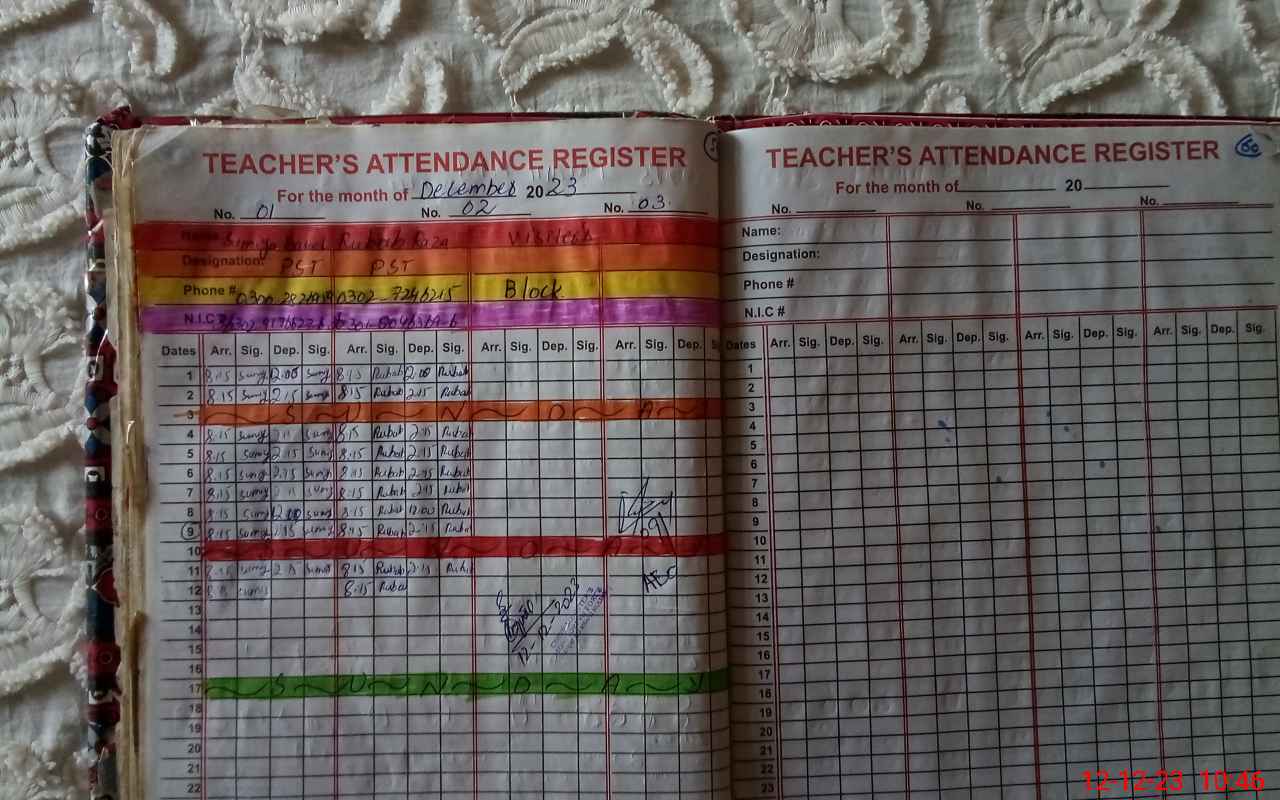 TEACHER'S ATTENDANCE REGISTER
For the month of December 2023
No. 01 No. 02 No. 03.
Name: Rubab Raza Visiters
Designation: PST PST
Phone # 0302-7246215 Block
N.I.C #
Dates Arr. Sig. Dep. Sig. Arr. Sig. Dep. Sig. Arr. Sig. Dep. Sig. Arr. Sig. Dep.
1 8:15 Sumy 2:00 Sumy 8:15 Rubab 2:00 Rubab
2 8:15 Sumy 2:15 Sumy 8:15 Rubab 2:15 Rubab
3 S U N D A Y
4 8:15 Sumy 2:15 Sumy 8:15 Rubab 2:15 Rubab
5 8:15 Sumy 2:15 Sumy 8:15 Rubab 2:15 Rubab
6 8:15 Sumy 2:15 Sumy 8:15 Rubab 2:15 Rubab
7 8:15 Sumy 2:15 Sumy 8:15 Rubab 2:15 Rubab
8 8:15 Sumy 12:00 Sumy 8:15 Rubab 12:00 Rubab
9 8:15 Sumy 2:15 Sumy 8:15 Rubab 2:15 Rubab
10 S U N D A Y
11 8:15 Sumy 2:15 Sumy 8:15 Rubab 2:15 Rubab
12 8:15 Sumy 8:15 Rubab
AEO
12-12-2023
13
14
15
16
17 S U N D A Y
18
19
20
21
22
TEACHER'S ATTENDANCE REGISTER
60
For the month of 20
No. No. No.
Name:
Designation:
Phone #
N.I.C #
Dates Arr. Sig. Dep. Sig. Arr. Sig. Dep. Sig. Arr. Sig. Dep. Sig. Arr. Sig. Dep. Sig.
1
2
3
4
5
6
7
8
9
10
11
12
13
14
15
16
17
18
19
20
21
22
23
12-12-23 10:46